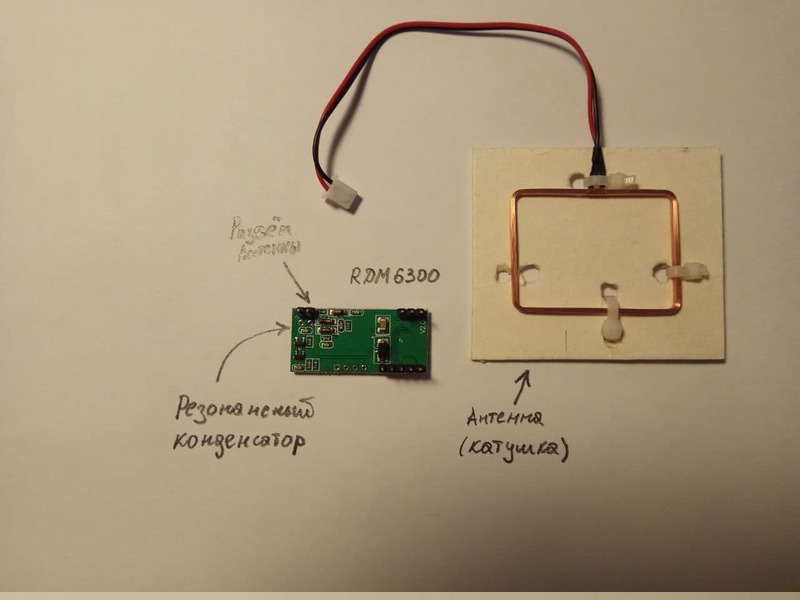 Разъём
Антенны
RDM6300
V2.0
Резонансный
конденсатор
Антенна
(катушка)